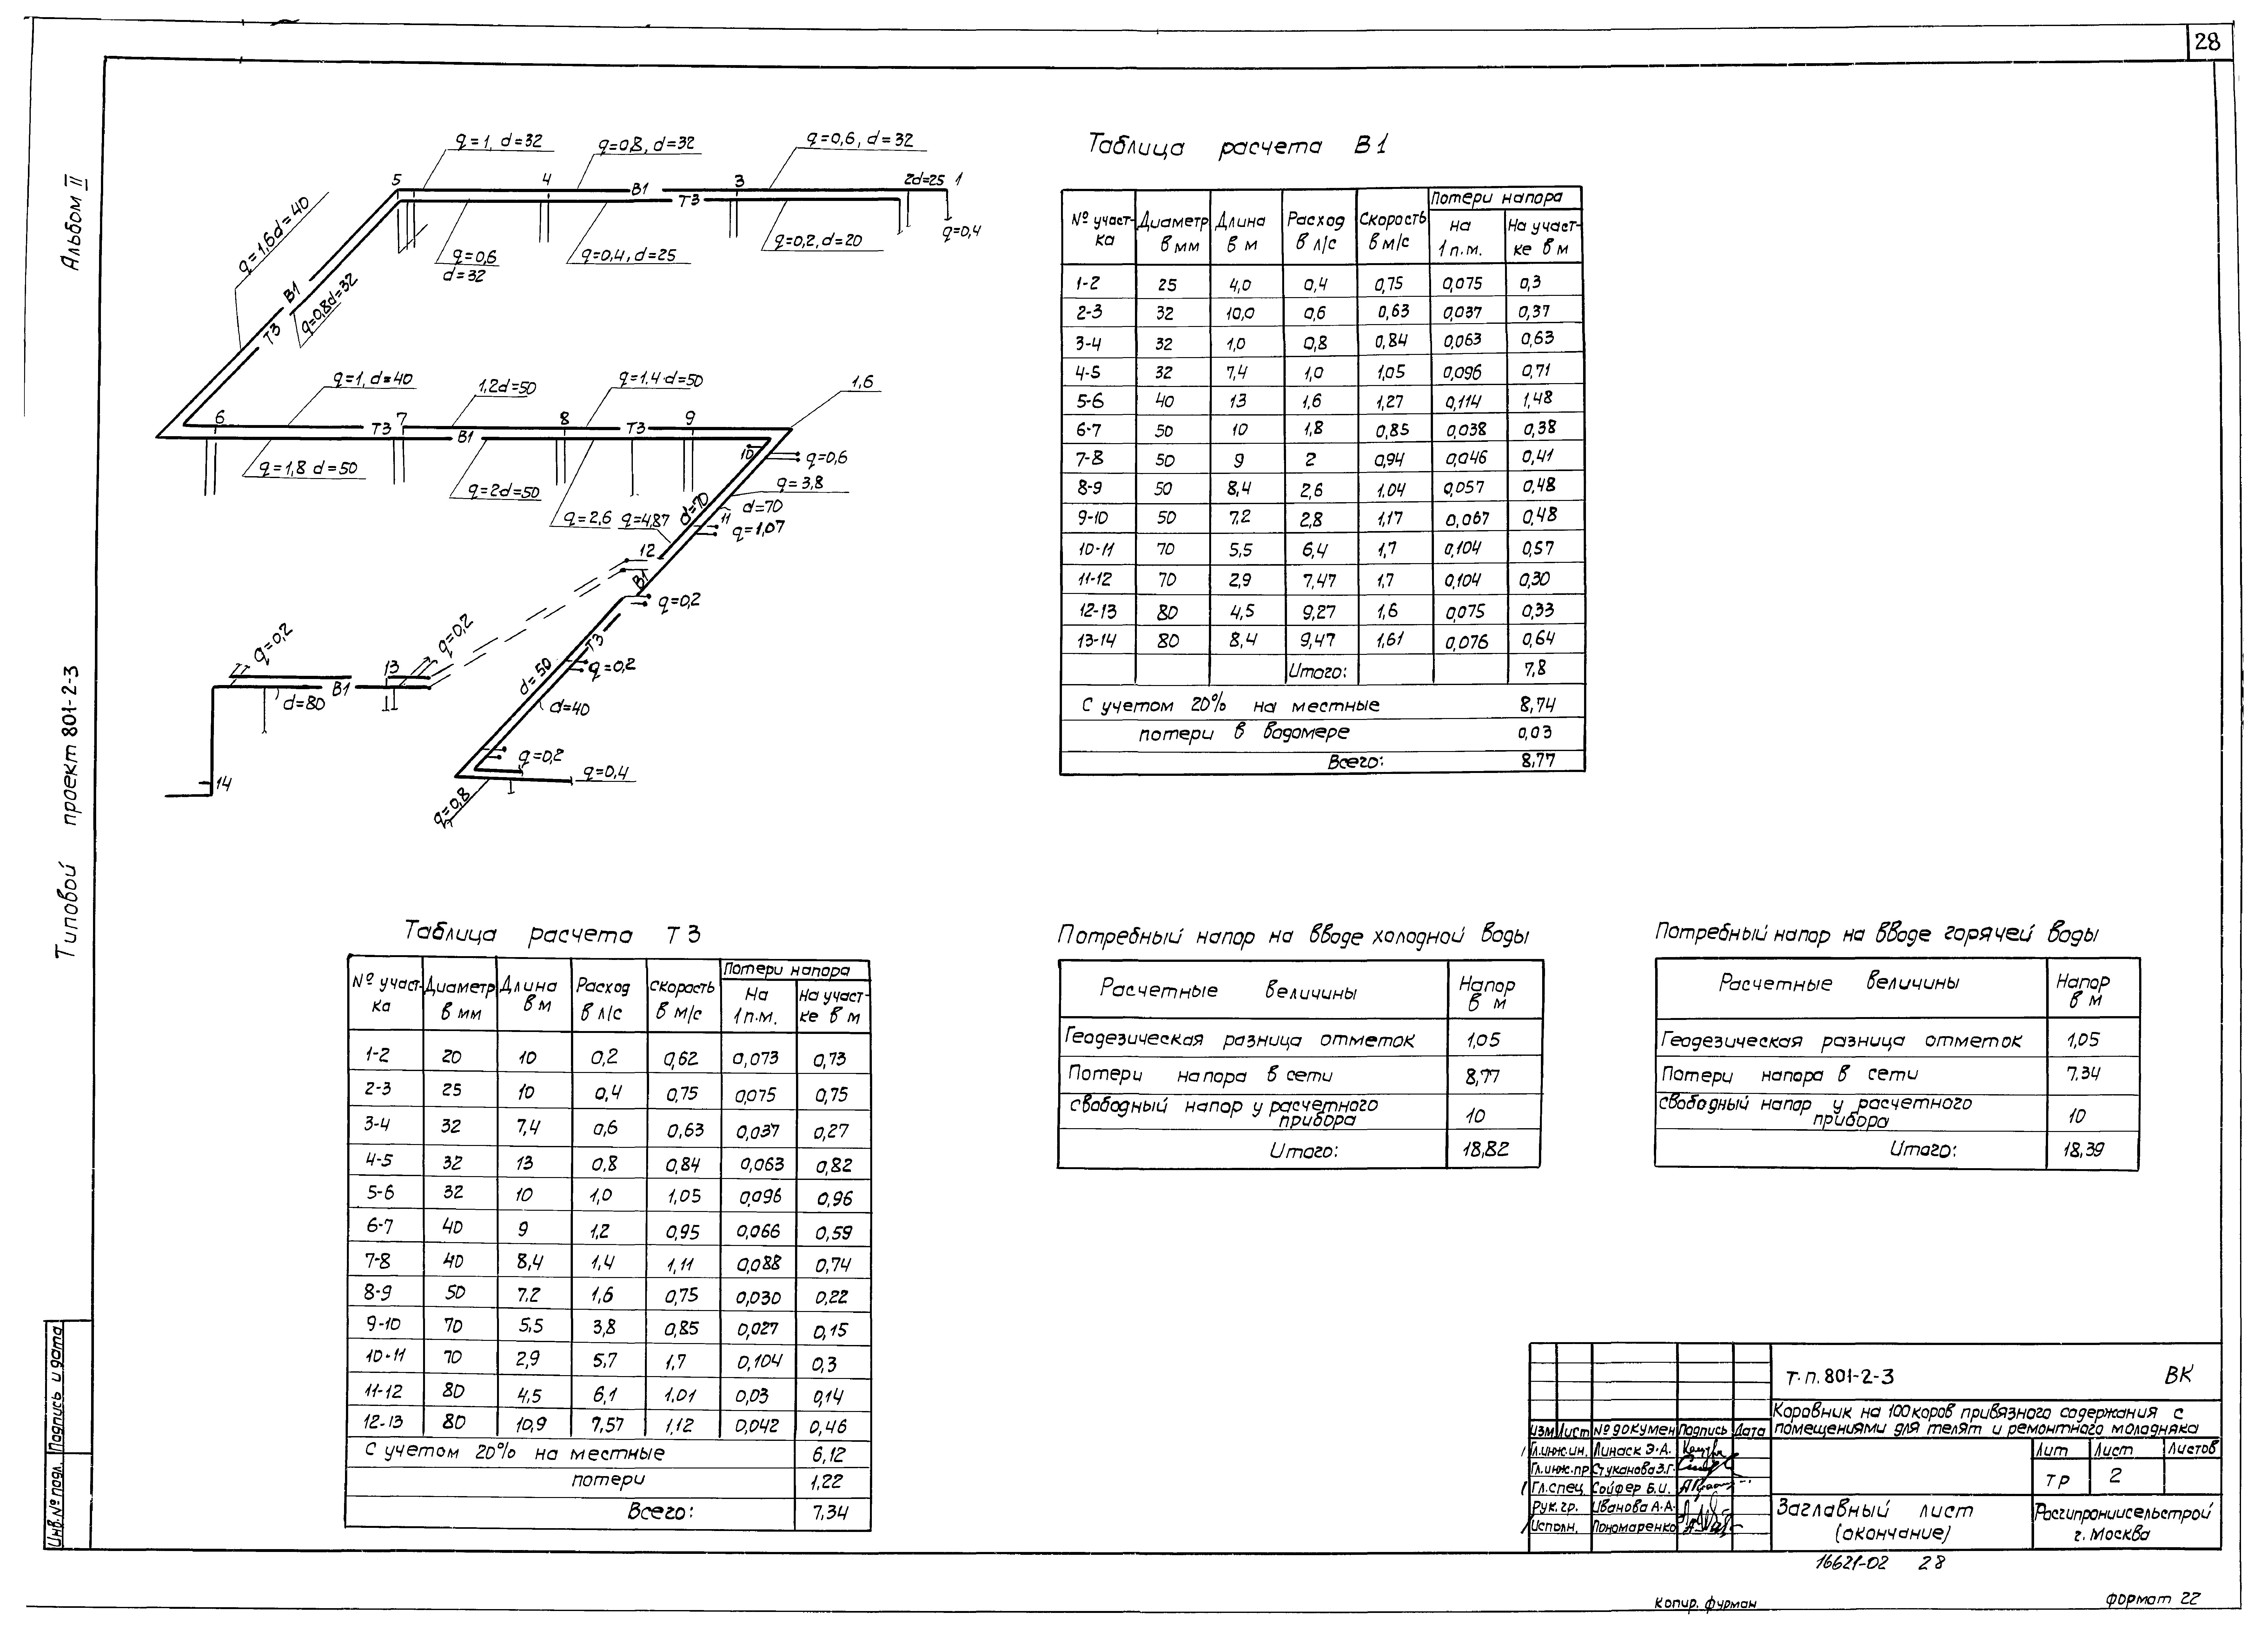 28
Альбом II
Типовой проект 801-2-3
Инв.№ подл. Подпись и дата
q=1, d=32
q=0,8, d=32
q=0,6, d=32
5
4
В1
3
2d=25 1
Т3
q=0,4
q=1,6d=40
q=0,6
d=32
q=0,4, d=25
q=0,2, d=20
В1
Т3
q=0,8d=32
q=1, d=40
1,2d=50
q=1.4 d=50
1,6
6
Т3
7
В1
8
Т3
9
10
q=0,6
q=1,8 d=50
q=2d=50
q=2,6
q=4,87
d=70
q=3,8
d=70
11
q=1,07
12
В1
q=0,2
q=0,2
q=0,2
Т3
d=50
q=0,2
13
d=80
В1
d=40
q=0,2
q=0,4
q=0,8
14
Таблица расчета В1
№ участ-ка Диаметр в мм Длина в м Расход в л/с Скорость в м/с Потери напора На 1 п.м. На участ-ке в м
1-2 25 4,0 0,4 0,75 0,075 0,3
2-3 32 10,0 0,6 0,63 0,037 0,37
3-4 32 1,0 0,8 0,84 0,063 0,63
4-5 32 7,4 1,0 1,05 0,096 0,71
5-6 40 13 1,6 1,27 0,114 1,48
6-7 50 10 1,8 0,85 0,038 0,38
7-8 50 9 2 0,94 0,046 0,41
8-9 50 8,4 2,6 1,04 0,057 0,48
9-10 50 7,2 2,8 1,17 0,067 0,48
10-11 70 5,5 6,4 1,7 0,104 0,57
11-12 70 2,9 7,47 1,7 0,104 0,30
12-13 80 4,5 9,27 1,6 0,075 0,33
13-14 80 8,4 9,47 1,61 0,076 0,64
Итого: 7,8
С учетом 20% на местные 8,74
потери в водомере 0,03
Всего: 8,77
Таблица расчета Т3
№ участ-ка Диаметр в мм Длина в м Расход в л/с скорость в м/с Потери напора На 1 п.м. На участ-ке в м
1-2 20 10 0,2 0,62 0,073 0,73
2-3 25 10 0,4 0,75 0,075 0,75
3-4 32 7,4 0,6 0,63 0,037 0,27
4-5 32 13 0,8 0,84 0,063 0,82
5-6 32 10 1,0 1,05 0,096 0,96
6-7 40 9 1,2 0,95 0,066 0,59
7-8 40 8,4 1,4 1,11 0,088 0,74
8-9 50 7.2 1,6 0,75 0,030 0,22
9-10 70 5,5 3,8 0,85 0,027 0,15
10-11 70 2,9 5,7 1,7 0,104 0,3
11-12 80 4,5 6,1 1,01 0,03 0,14
12-13 80 10,9 7,57 1,12 0,042 0,46
С учетом 20% на местные 6,12
потери 1,22
Всего: 7,34
Потребный напор на вводе холодной воды
Расчетные величины Напор в м
Геодезическая разница отметок 1,05
Потери напора в сети 8,77
свободный напор у расчетного прибора 10
Итого: 18,82
Потребный напор на вводе горячей воды
Расчетные величины Напор в м
Геодезическая разница отметок 1,05
Потери напора в сети 7,34
свободный напор у расчетного прибора 10
Итого: 18,39
т.п. 801-2-3 ВК
Коровник на 100 коров привязного содержания с
помещениями для телят и ремонтного молодняка
Изм Лист № докумен Подпись Дата
Гл.инж.ин. Линаск Э.А.
Гл.инж.пр Стуканова З.Г.
Гл.спец Сойфер Б.И.
Рук.гр. Иванова А.А.
Исполн. Пономаренко
Лит Лист Листов
ТР 2
Заглавный лист
(окончание)
Росгипрониисельстрой
г. Москва
16621-02 28
Копир. Фурман
формат 22